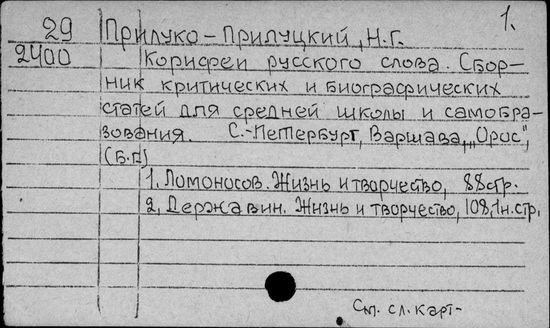 1.
29 Прилуко-Прилуцкий, Н.Г.
2400 Корифеи русского слова. Сбор-
ник критических и биографических
статей для средней школы и самобра-
зования. С.-Петербург, Варшава, „Орос",
(Б.г.)
1. Ломоносов. Жизнь и творчество, 88стр.
2. Державин. Жизнь и творчество, 108,1н.стр.
См. сл. карт-